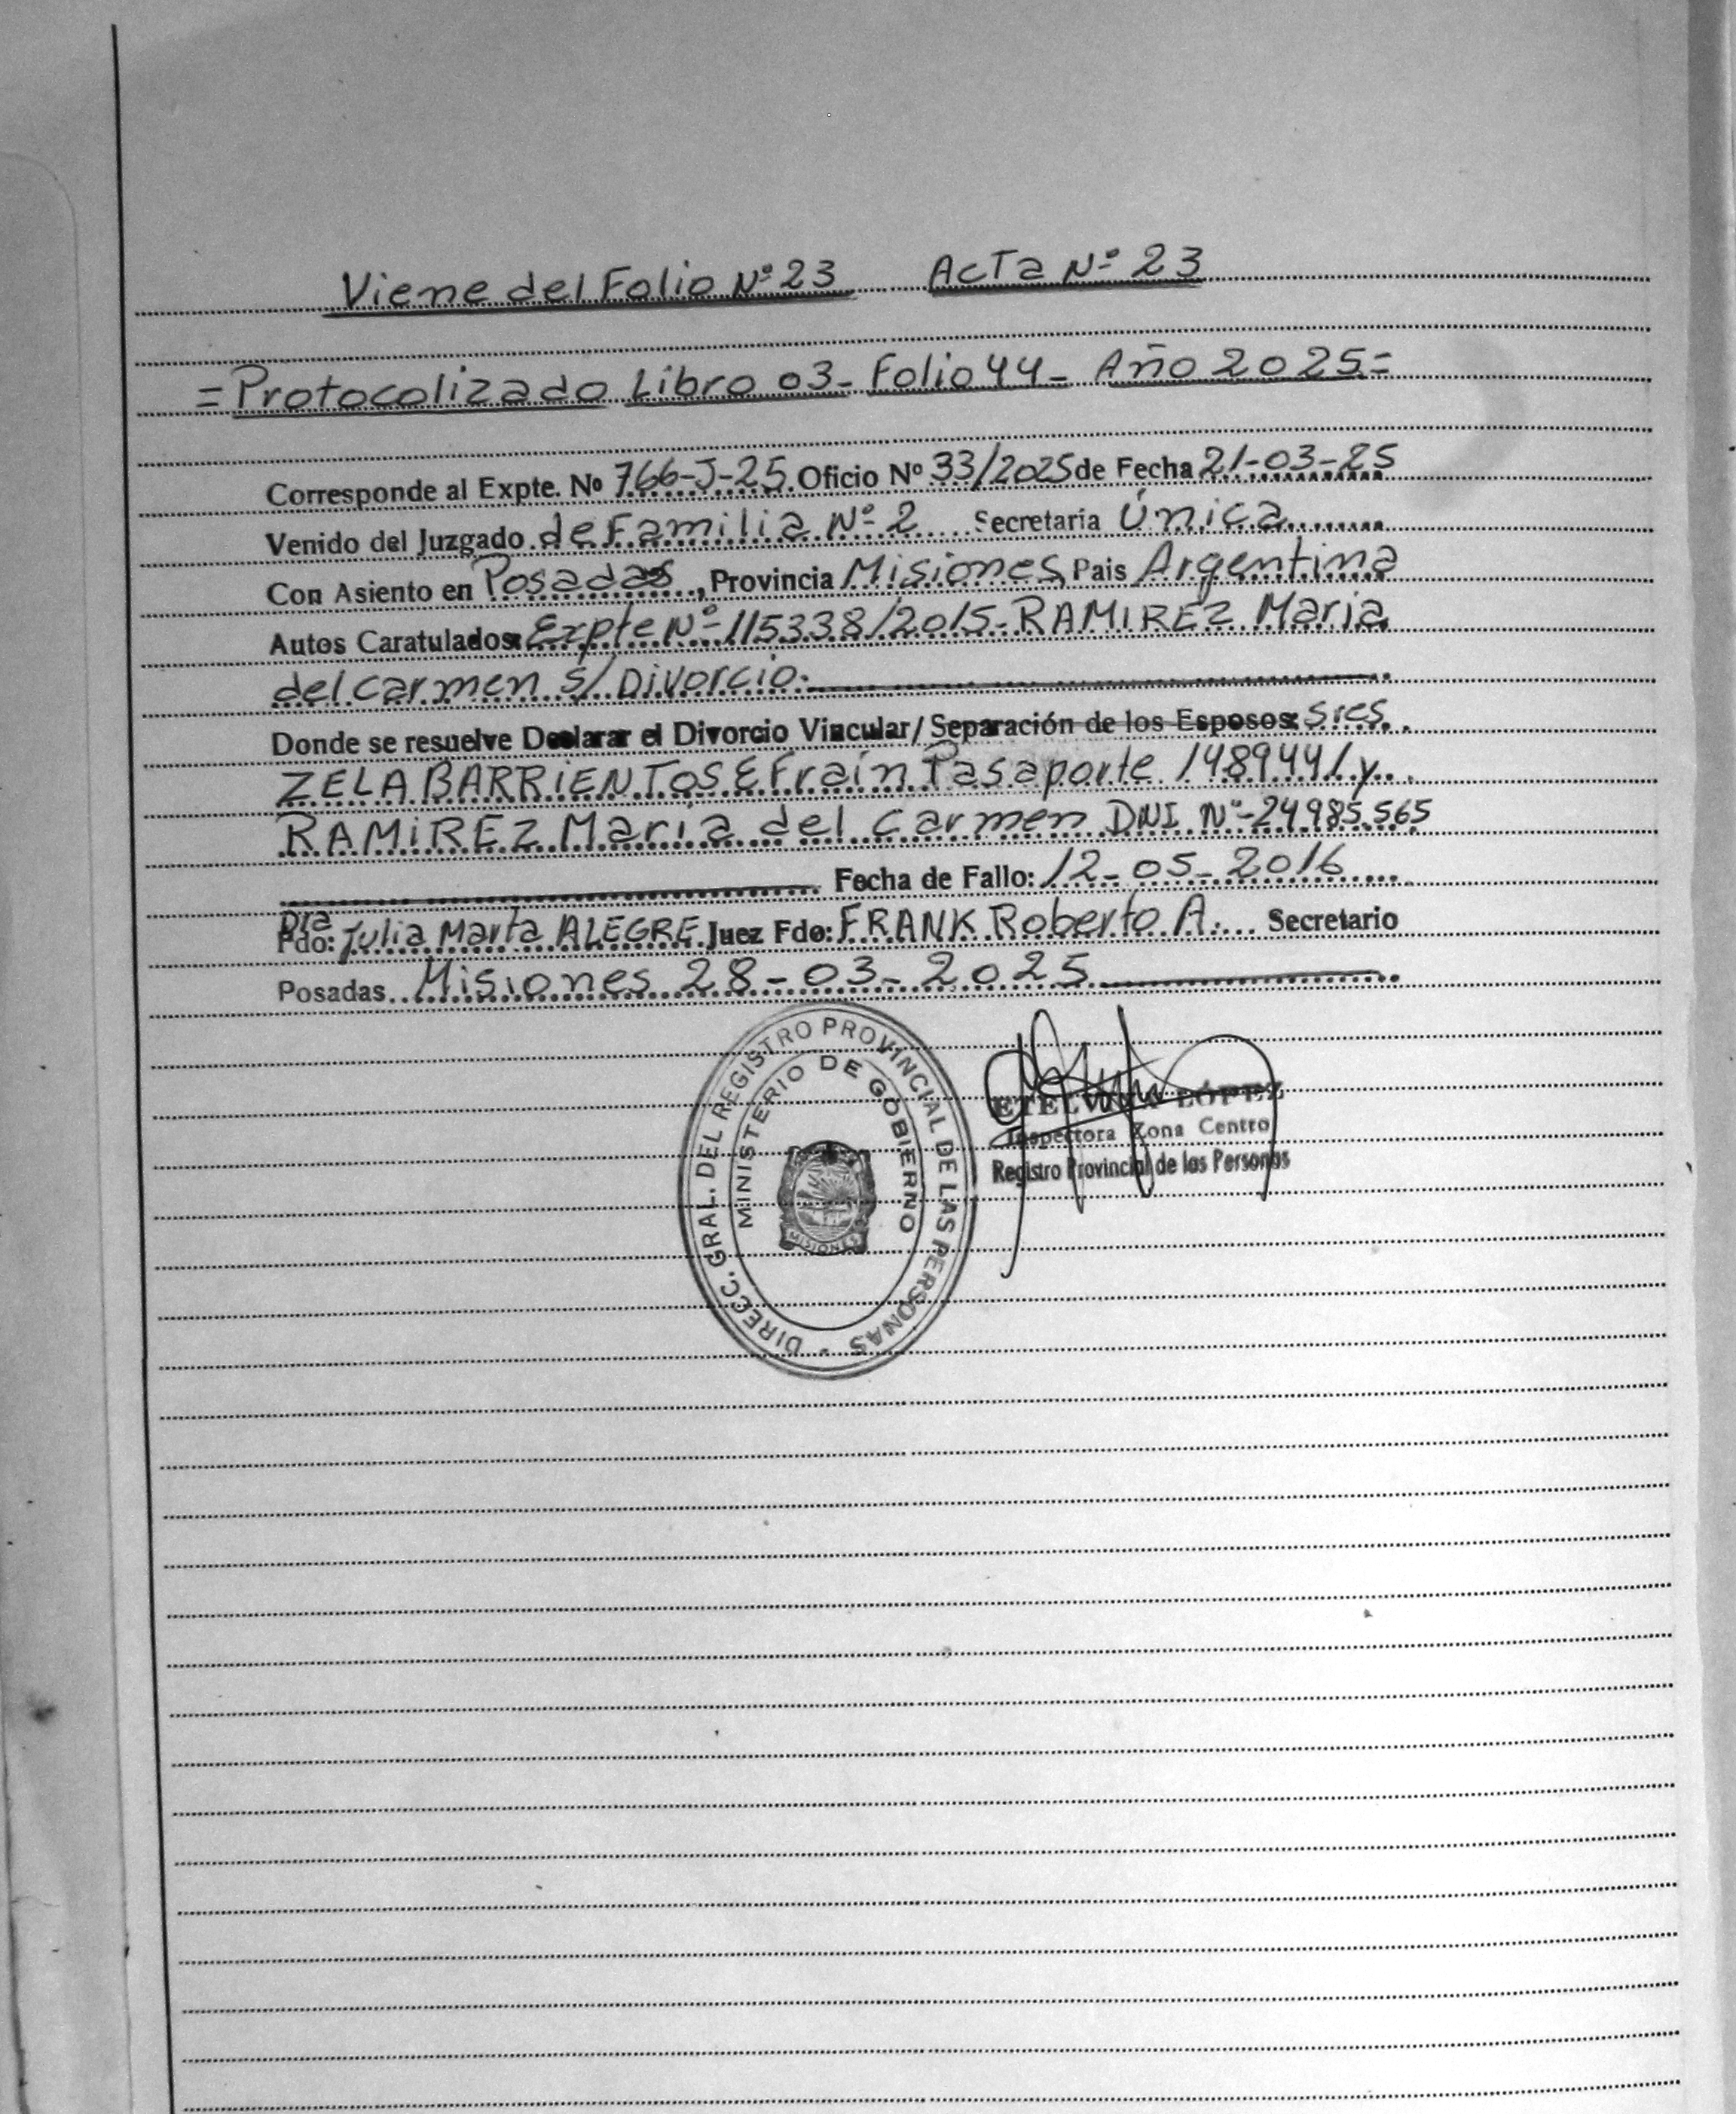 Viene del Folio Nº 23 Acta Nº 23
= Protocolizado Libro 03- Folio 44- Año 2025=
Corresponde al Expte. Nº 766-J-25. Oficio Nº 33/2025 de Fecha 21-03-25
Venido del Juzgado de Familia Nº 2 Secretaria Única
Con Asiento en Posadas, Provincia Misiones, Pais Argentina
Autos Caratulados: Expte Nº 115338/2015- RAMIREZ Maria
del carmen s/ Divorcio.
Donde se resuelve Declarar el Divorcio Vincular/ Separación de los Esposos: Sres.
ZELA BARRIENTOS Efraín Pasaporte 1489441 y
RAMIREZ María del carmen DNI Nº 24985.565
Fecha de Fallo: 12-05-2016
Dra
Fdo: Julia Marta ALEGRE Juez Fdo: FRANK Roberto A. Secretario
Posadas. Misiones 28-03-2025
DIRECC. GRAL. DEL REGISTRO PROVINCIAL DE LAS PERSONAS
MINISTERIO DE GOBIERNO
MISIONES
ETELVINA LÓPEZ
Inspectora Zona Centro
Registro Provincial de las Personas